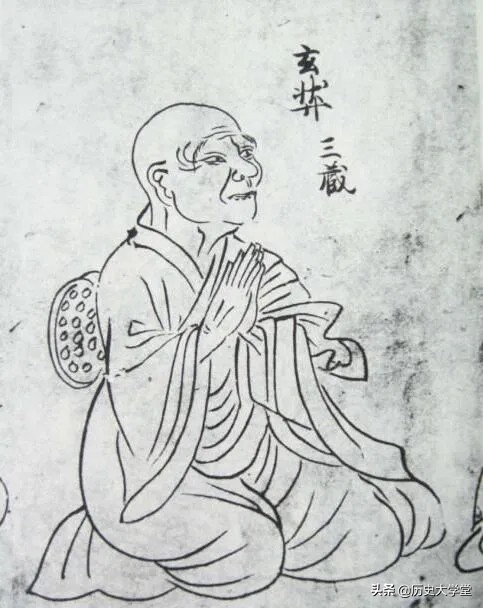 玄奘 三藏
头条 @历史大学堂